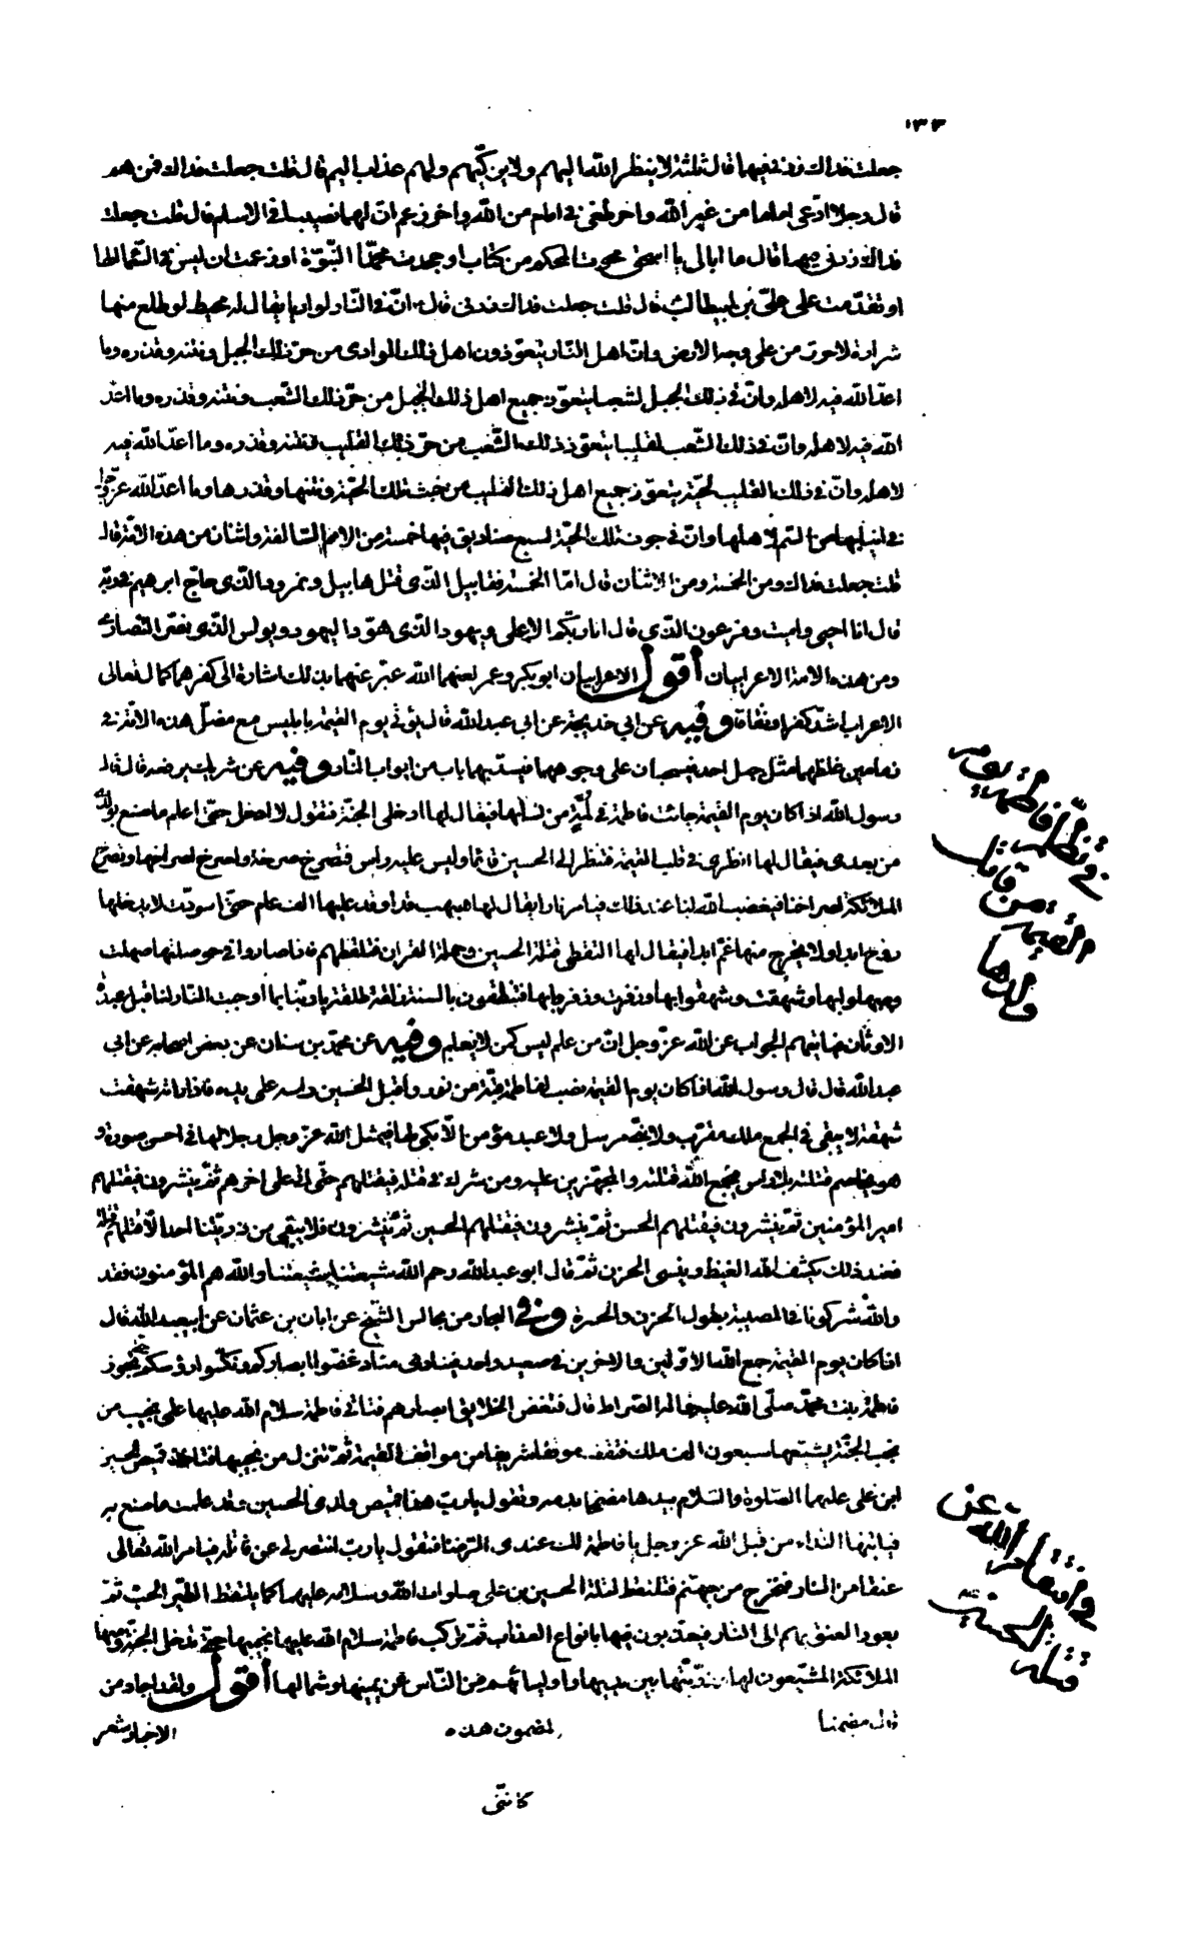 ١٣٣
جعلت فداك زدني فيهما قال ثلثة لا ينظر الله اليهم ولا يزكّيهم ولهم عذاب اليم قال قلت جعلت فداك فمن هم
قال رجلا ادّعى اماما من غير الله واخر طعن في امام من الله واخر زعم ان لهما نصيبا في الاسلام قال قلت جعلت
فداك زدني فيهما قال ما ابالي يا اسحق محوت المحكم من كتاب او جحدت محمّدا النّبوّة او زعمت ان ليس في السّماء الها
او تقدّمت على عليّ بن ابيطالب قال قلت جعلت فداك زدني قال انّ في النّار لواديا يقال له محيط لو طلع منها
شرارة لاحرق من على وجه الارض وانّ اهل النّار يتعوّذون اهل ذلك الوادى من حرّ ذلك الجبل ونتنه وقذره وما
اعدّ الله فيه لاهله وانّ في ذلك الجبل لشعبا يتعوّذ جميع اهل ذلك الجبل من حرّ ذلك الشّعب ونتنه وقذره وما اعدّ
الله فيه لاهله وانّ في ذلك الشّعب لقليبا يتعوّذ ذلك الشّعب من حرّ ذلك القليب ونتنه وقذره وما اعدّ الله فيه
لاهله وانّ في ذلك القليب لحيّة يتعوّذ جميع اهل ذلك القليب من خبث تلك الحيّة ونتنها وقذرها وما اعدّ الله عزّ وجل
في انيابها من السّم لاهلها وانّ في جوف تلك الحيّة لسبع صناديق فيها خمسة من الامم السّالفة واثنان من هذه الامّة قال
قلت جعلت فداك ومن الخمسة ومن الاثنان قال امّا الخمسة فقابيل الّذى قتل هابيل ونمرود الّذى حاجّ ابرهيم في ربّه
قال انا احيى واميت وفرعون الّذى قال انا ربّكم الاعلى ويهود الّذى هوّد اليهود وبولس الّذى نصّر النّصارى
ومن هذه الامة الاعرابيان أقول الاعرابيان ابو بكر وعمر لعنهما الله عبّر عنهما بذلك اشارة الى كفرهما كما قال تعالى
الاعراب اشدّ كفرا ونفاقا وفيه عن ابي خديجة عن ابي عبد الله قال يؤتى يوم القيمة بابليس مع مضلّ هذه الامّة في
زمامين غلظهما مثل جبل احد فيسحبان على وجوههما فيسدّ بهما باب من ابواب النّار وفيه عن شريك يرفعه قال قال
رسول الله اذا كان يوم القيمة جائت فاطمة في لمّة من نسائها فيقال لها ادخلى الجنّة فتقول لا ادخل حتّى اعلم ما صنع بولدى
من بعدى فيقال لها انظرى في قلب القيمة فتنظر الى الحسين قائما وليس عليه راس فتصرخ صرخة واصرخ لصراخها وتصرخ
الملائكة لصراخنا فيغضب الله لنا عند ذلك فيامر نارا يقال لها هبهب قد اوقد عليها الف عام حتّى اسودّت لا يدخلها
روح ابدا ولا يخرج منها غمّ ابدا فيقال لها التقطى قتلة الحسين وحملة القران فتلتقطهم فاذا صاروا في حوصلتها صهلت
وصهلوا بها وشهقت وشهقوا بها وزفرت وزفروا بها فينطقون بالسنة ذلقة طلقة يا ربّنا بما اوجبت النّار لنا قبل عبدة
الاوثان فياتيهم الجواب عن الله عزّ وجل انّ من علم ليس كمن لا يعلم وفيه عن محمّد بن سنان عن بعض اصحابه عن ابي
عبد الله قال قال رسول الله اذا كان يوم القيمة نصب لفاطمة قبّة من نور واقبل الحسين راسه على يده فاذا راته شهقت
شهقة لا يبقى في الجمع ملك مقرّب ولا نبيّ مرسل ولا عبد مؤمن الّا بكى لها فيمثل الله عزّ وجل رجلا لها في احسن صورة و
هو يخاصم قتلته بلا راس فيجمع الله قتلته والمجهّزين عليه ومن شرك في قتله فيقتلهم حتّى اتى على اخرهم ثمّ ينشرون فيقتلهم
امير المؤمنين ثمّ ينشرون فيقتلهم الحسن ثمّ ينشرون فيقتلهم الحسين ثمّ ينشرون فلا يبقى من ذريّتنا احد الّا قتلهم قتلة
فعند ذلك يكشف الله الغيظ وينسى الحزن ثمّ قال ابو عبد الله رحم الله شيعتنا شيعتنا والله هم المؤمنون فقد
والله شركونا في المصيبة بطول الحزن والحسرة وفي البحار من مجالس الشّيخ عن ابان بن عثمان عن ابيعبد الله قال
اذا كان يوم القيمة جمع الله الاوّلين والاخرين في صعيد واحد فينادى مناد غضّوا ابصاركم ونكّسوا رؤسكم حتى تجوز
فاطمة بنت محمّد صلّى الله عليه واله الصّراط قال فتغض الخلايق ابصارهم فتاتي فاطمة سلام الله عليها على نجيب من
نجب الجنّة يشيّعها سبعون الف ملك فتقف موقفا شريفا من مواقف القيمة ثمّ تنزل من نجيبها فتاخذ قميص الحسين
ابن على عليهما الصّلوة والسّلام بيدها مضمّخا بدمه وتقول يا ربّ هذا قميص ولدى الحسين وقد علمت ما صنع به
فياتيها النّداء من قبل الله عز وجل يا فاطمة لك عندى الرّضا فتقول يا ربّ انتصر لى من قاتله فيامر الله تعالى
عنقا من النّار فتخرج من جهنّم فتلتقط قتلة الحسين بن على صلوات الله وسلامه عليهما كما يلتقط الطّير الحبّ ثمّ
يعود العنق بهم الى النار فيعذّبون فيها بانواع العذاب ثمّ تركب فاطمة سلام الله عليها نجيبها حتّى تدخل الجنّة ومعها
الملائكة المشيّعون لها وذرّيّتها بين يديها واوليائهم من النّاس عن يمينها وشمالها أقول ولقد اجاد من
قال مضمنا لمضمون هذه الاخبار شعر
كانّى
في تظلّم فاطمة يوم
القيمة من قاتل
ولدها
وانتقام الله عن
قتلة الحسين